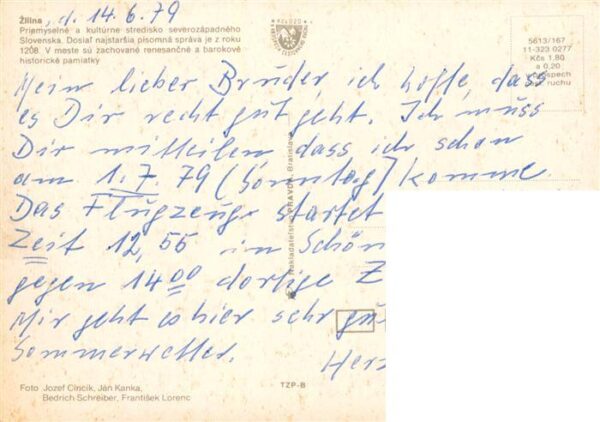 Žilina, d. 14.6.79
Priemyselné a kultúrne stredisko severozápadného
Slovenska. Dosiaľ najstaršia písomná správa je z roku
1208. V meste sú zachované renesančné a barokové
historické pamiatky
5613/167
11-323 0277
Kčs 1.80
a 0,20
ruchu
Mein lieber Bruder, ich hoffe, dass
es Dir recht gut geht. Ich muss
Dir mitteilen dass ich schon
am 1.7.79 (Sonntag) komme.
Das Flugzeug startet
Zeit 12,55 in Schön
gegen 14 00 dortige Z
Mir geht es hier sehr gu
Sommerwetter.
Herz
PRAVDA Bratislava
Foto Jozef Cincík, Ján Kanka,
Bedrich Schreiber, František Lorenc
TZP-B